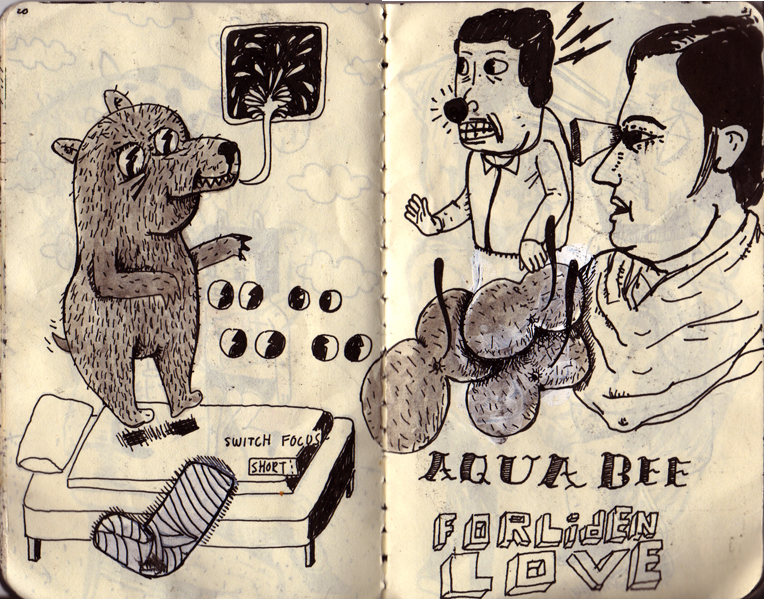 20
SWITCH FOCUS
SHORT!
AQUA BEE
FORLidEN
LOVE